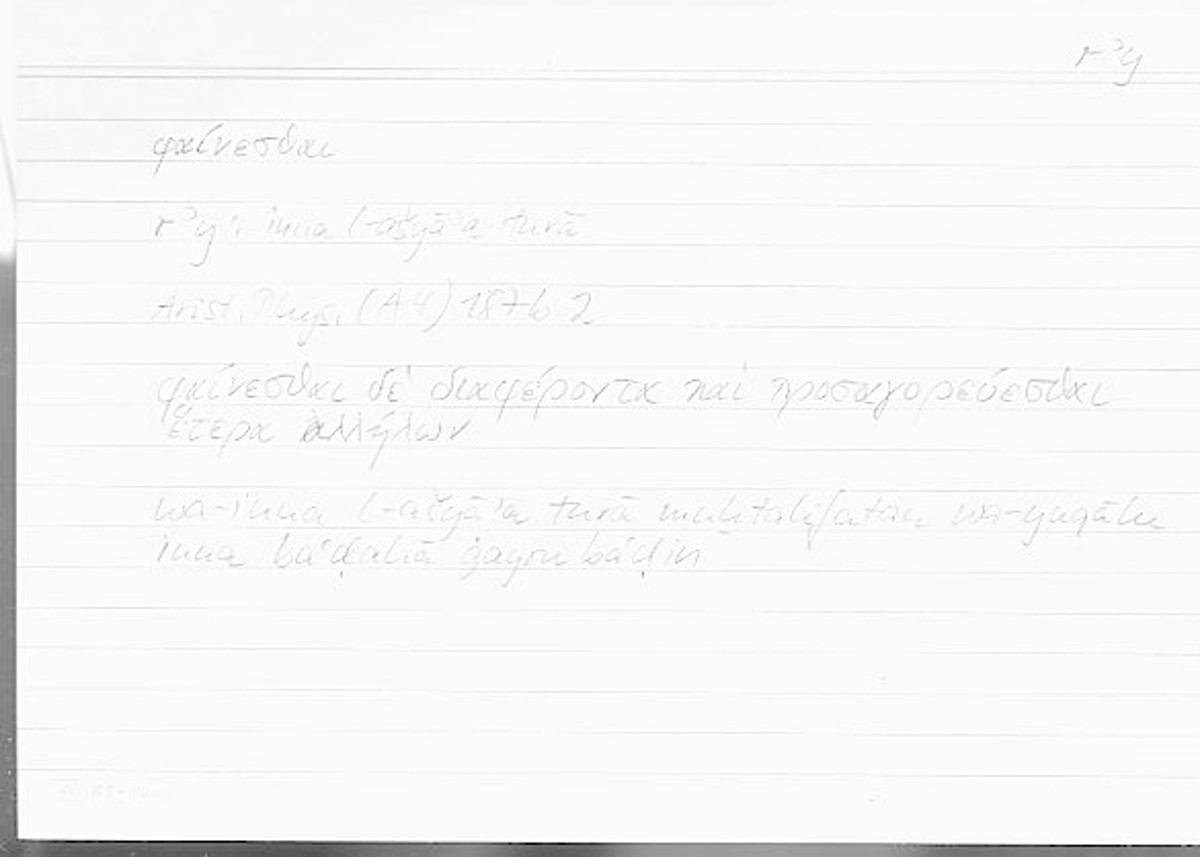 rʾy
φαίνεσθαι
rʾy: inna l-ašyāʾa turā
Arist. Phys. (A 4) 187b 2
φαίνεσθαι δὲ διαφέροντα καὶ προσαγορεύεσθαι
ἕτερα ἀλλήλων
wa-inna l-ašyāʾa turā muḫtalifatan wa-yuqālu
inna baʿḍahā ġayru baʿḍin